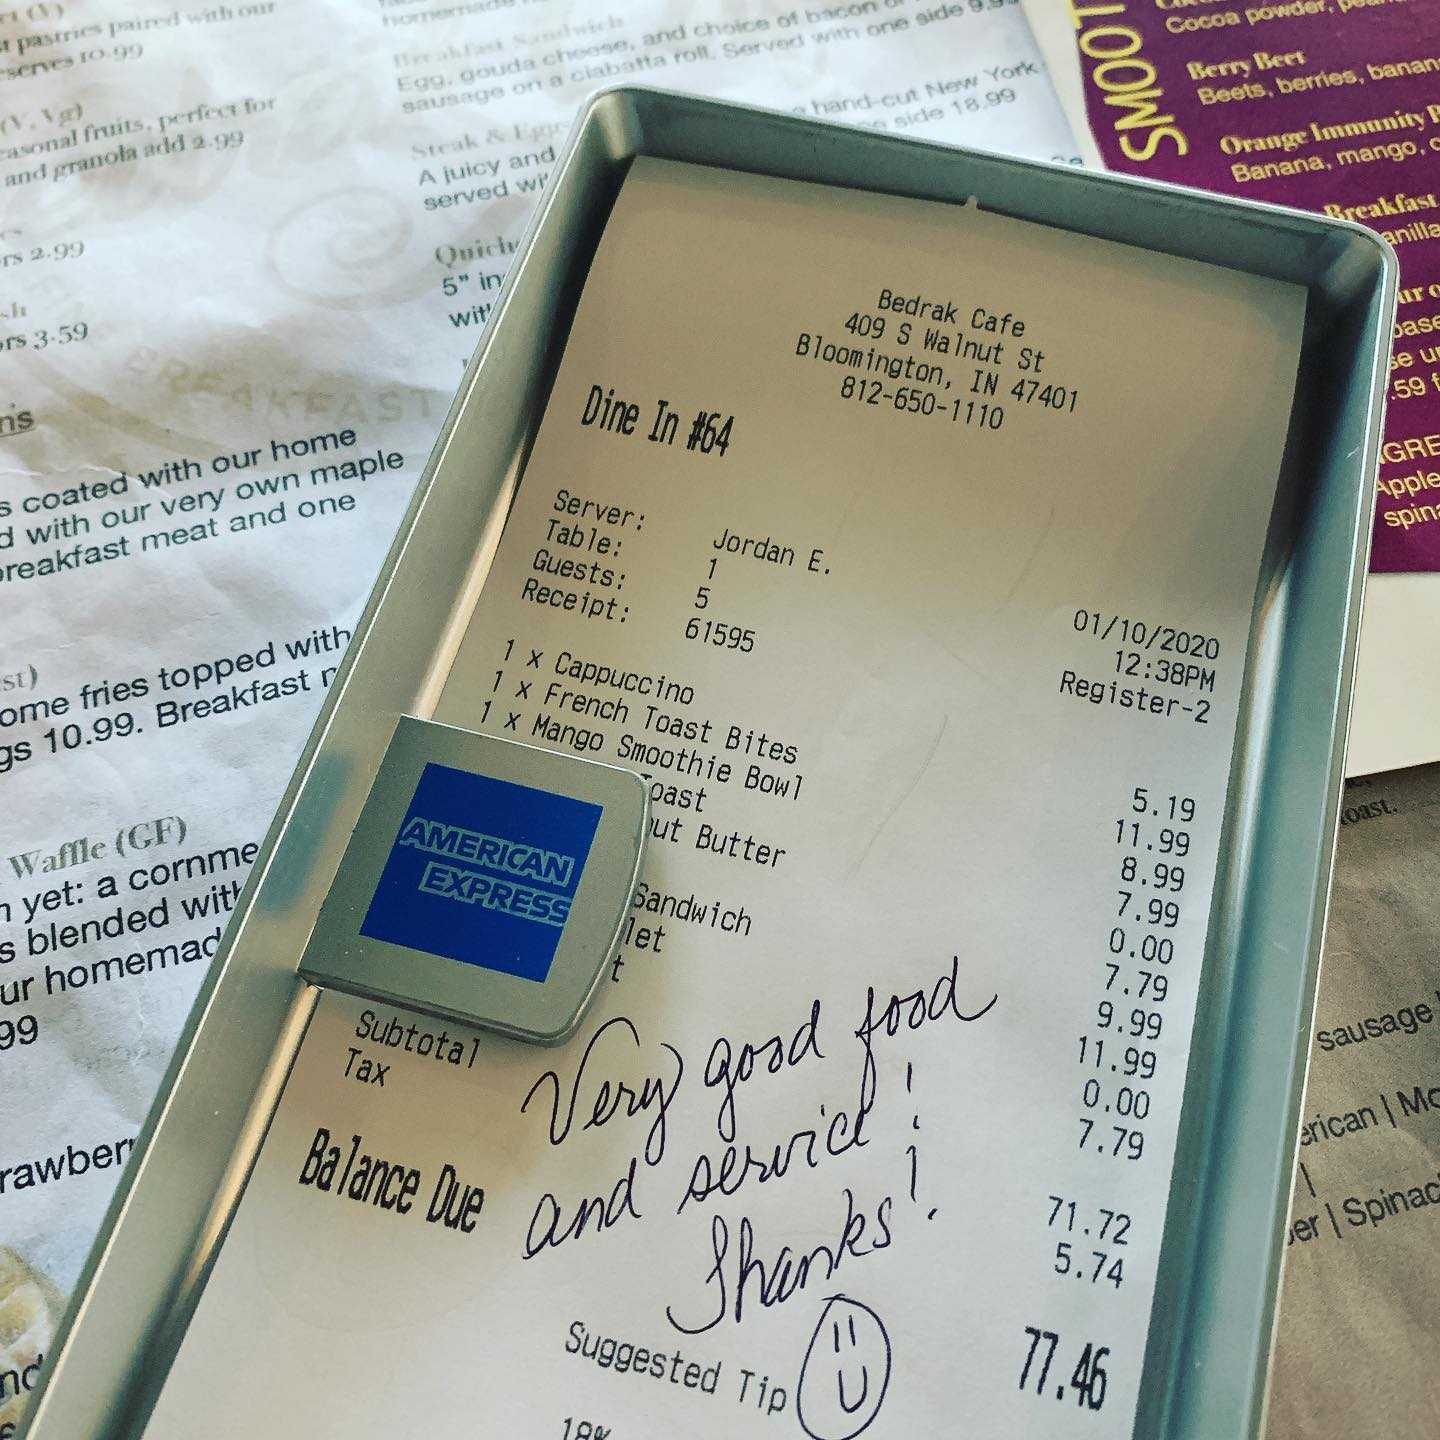 pastries paired with our
serves 10.99
(V, Vg)
seasonal fruits, perfect for
and granola add 2.99
2.99
3.59
coated with our home
with our very own maple
breakfast meat and one
home fries topped with
10.99. Breakfast
Waffle (GF)
yet: a cornme
blended with
our homemad
99
Breakfast Sandwich
Egg, gouda cheese, and choice of bacon or
sausage on a ciabatta roll. Served with one side 9.99
Steak & Eggs
hand-cut New York
A juicy and
side 18.99
served wi
Quiche
5" in
with
BREAKFAST
SMOOT
Cocoa powder,
Berry Beet
Beets, berries, banan
Orange Immunity
Banana, mango,
Breakfast
vanilla
.59
Apple
spina
Bedrak Cafe
409 S Walnut St
Bloomington, IN 47401
812-650-1110
Dine In #64
Server: Jordan E.
Table: 1
Guests: 5
Receipt: 61595
01/10/2020
12:38PM
Register-2
1 x Cappuccino 5.19
1 x French Toast Bites 11.99
1 x Mango Smoothie Bowl 8.99
Toast 7.99
ut Butter 0.00
7.79
Sandwich 9.99
let 11.99
t 0.00
7.79
Subtotal 71.72
Tax 5.74
Balance Due 77.46
Very good food
and service!
Thanks!
Suggested Tip
18%
AMERICAN
EXPRESS
toast.
sausage
erican | Mo
| Spinac